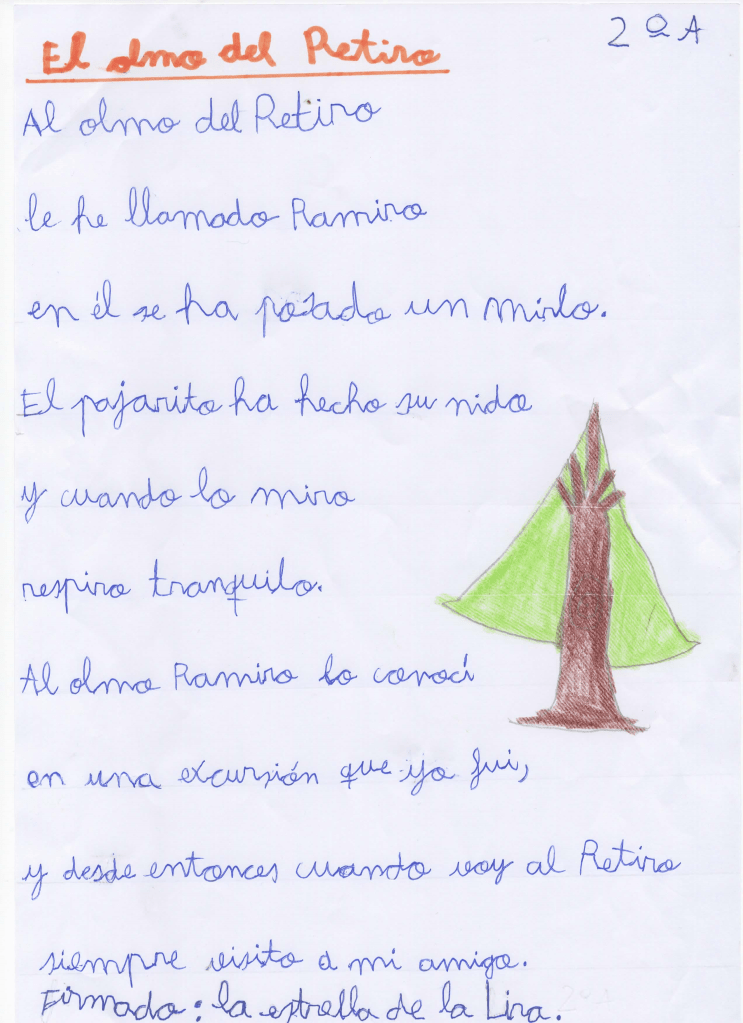 2º A
El olmo del Retiro
Al olmo del Retiro
le he llamado Ramiro
en él se ha posado un mirlo.
El pajarito ha hecho su nido
y cuando lo miro
respiro tranquilo.
Al olmo Ramiro lo conocí
en una excursión que yo fui,
y desde entonces cuando voy al Retiro
siempre visito a mi amigo.
Firmado: la estrella de la Lira.